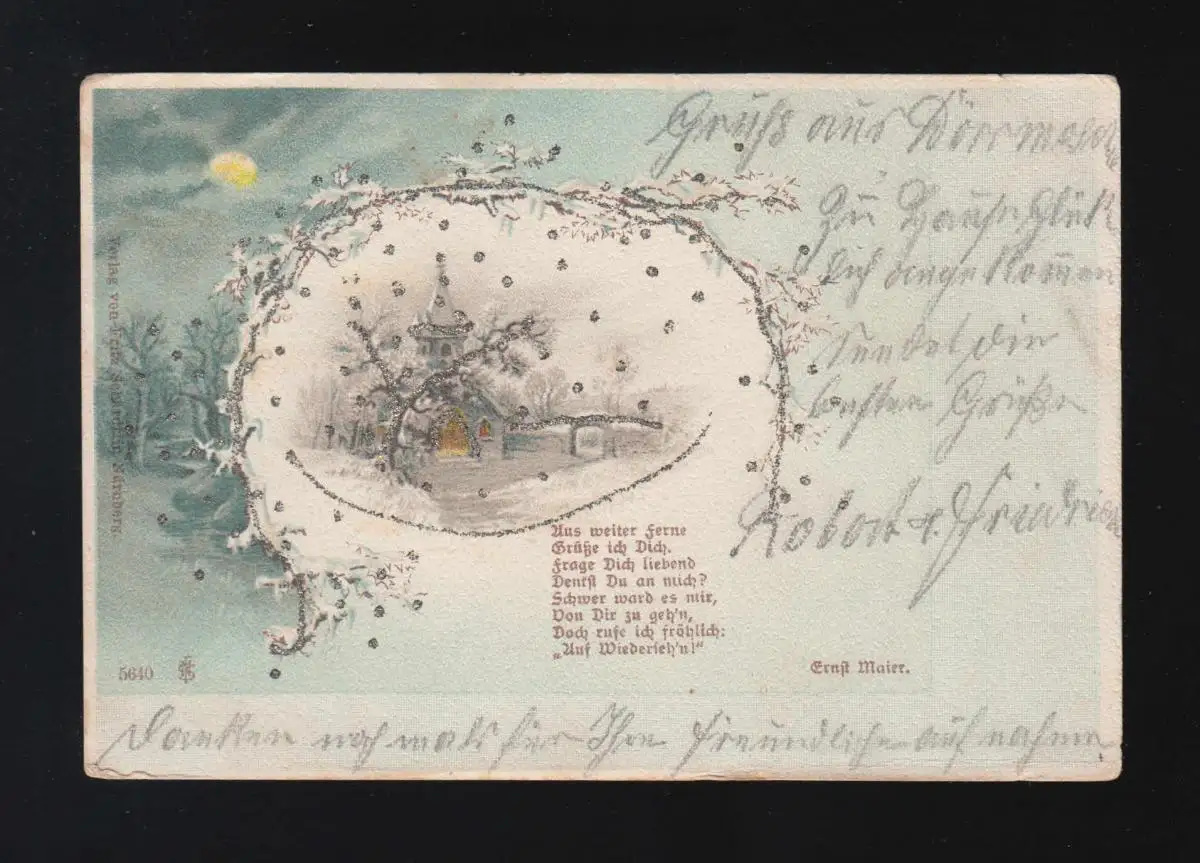 Gruß aus
zu Hause Glük
lich angekommen
sendet die
besten Grüße
Robert u.
Verlag von Nürnberg.
Aus weiter Ferne
Grüße ich Dich.
Frage Dich liebend
Denkst Du an mich?
Schwer ward es mir,
Von Dir zu geh'n,
Doch rufe ich fröhlich:
„Auf Wiederseh'n!“
Ernst Maier.
5640
Danken noch mals für Ihre freundliche aufnahme